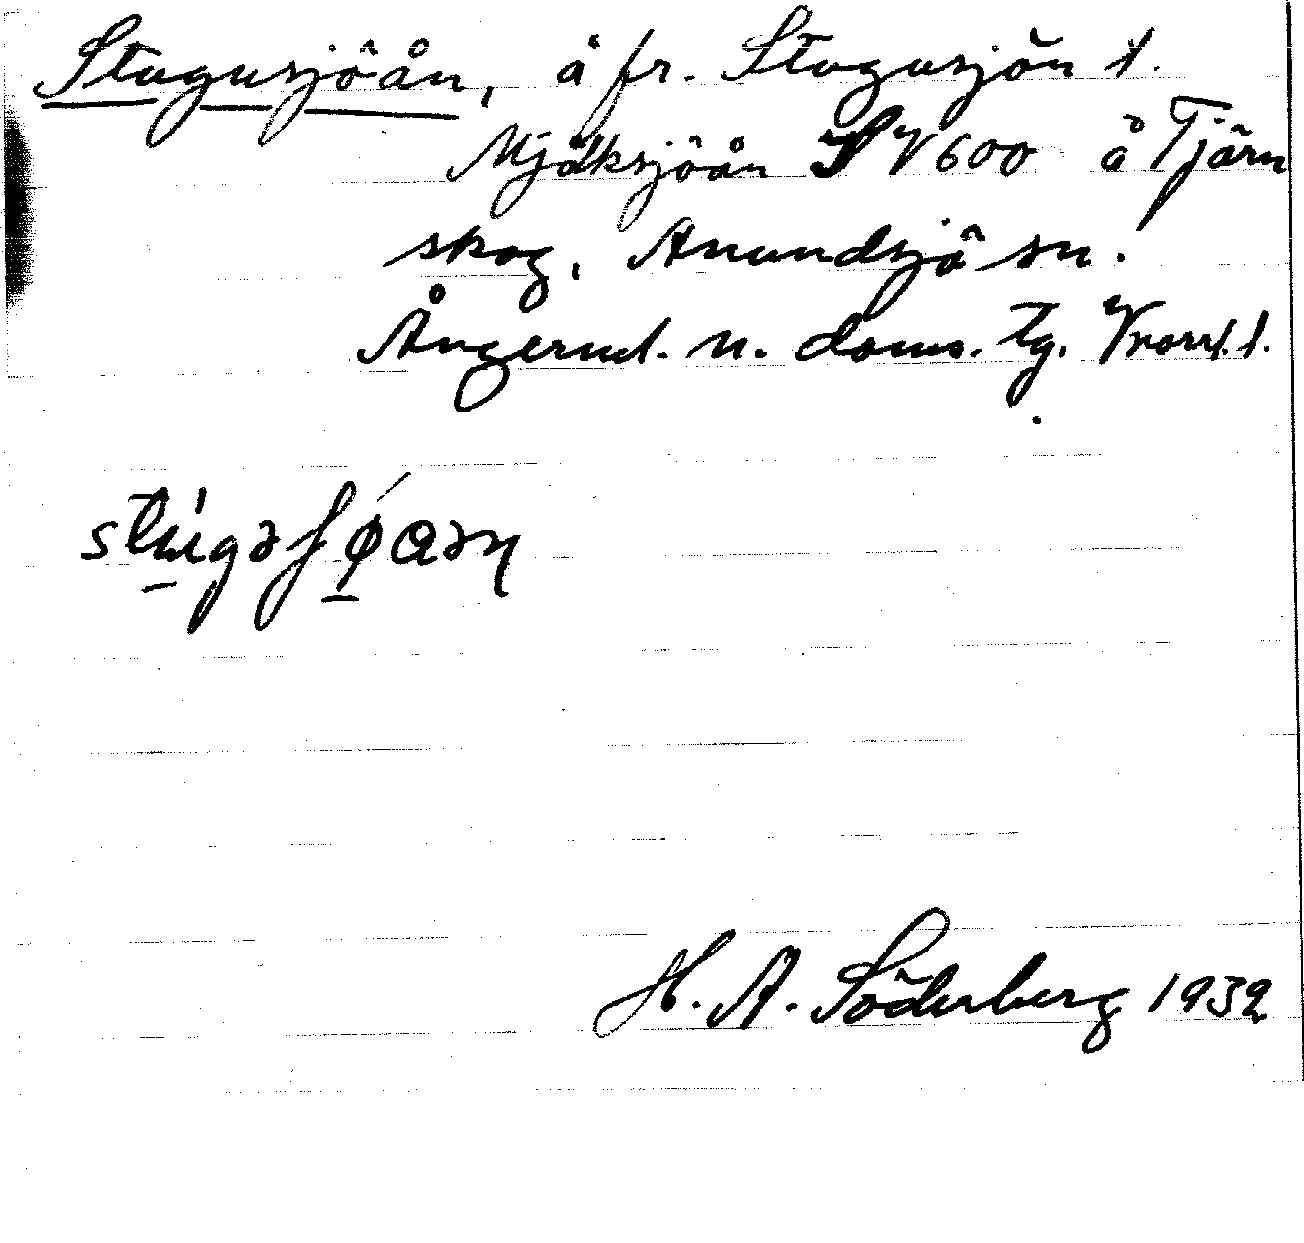 Stugusjöån, å fr. Stugusjön t.
Mjölksjöån SV 600 å Tjärn
skog, Anundsjö sn.
Ångerml. n. doms. tg. Vnorrl. l.
H. A. Söderberg 1932